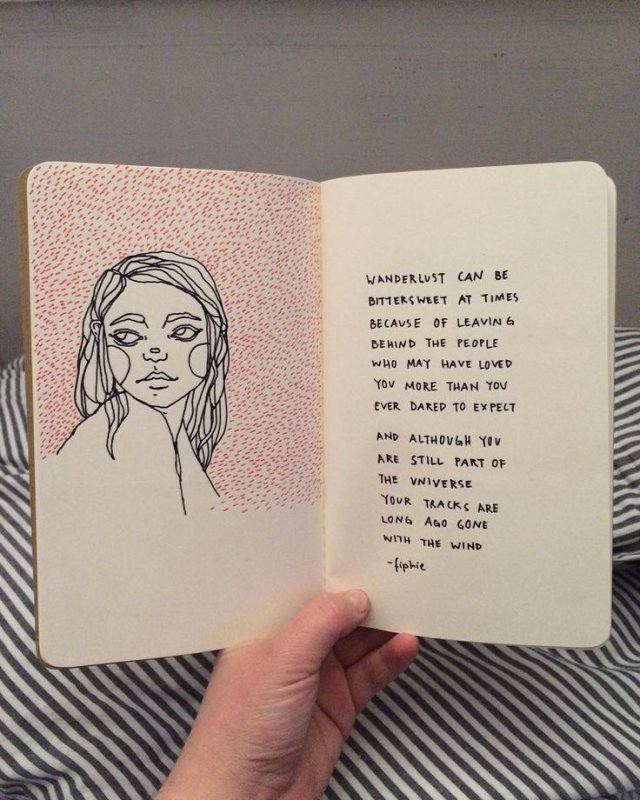 WANDERLUST CAN BE
BITTERSWEET AT TIMES
BECAUSE OF LEAVING
BEHIND THE PEOPLE
WHO MAY HAVE LOVED
YOU MORE THAN YOU
EVER DARED TO EXPECT
AND ALTHOUGH YOU
ARE STILL PART OF
THE UNIVERSE
YOUR TRACKS ARE
LONG AGO GONE
WITH THE WIND
-fiphie